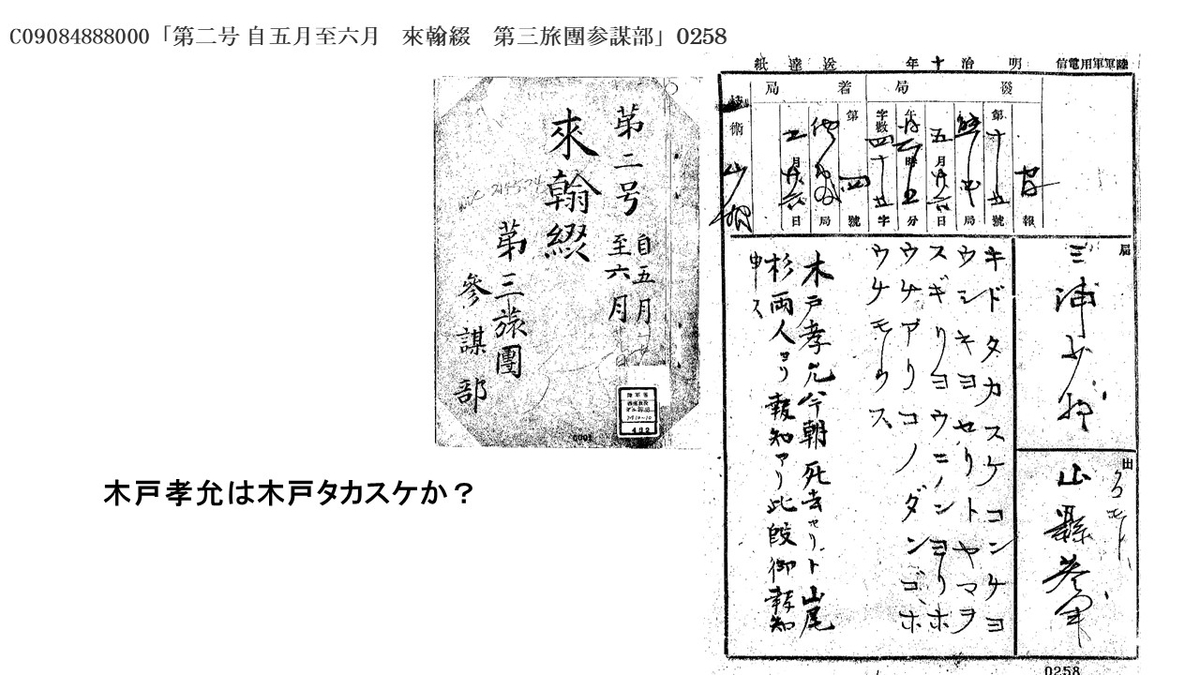 C09084888000「第二号 自五月至六月　來翰綴　第三旅團参謀部」0258
第二号 自五月至六月
來翰綴
第三旅團
參謀部
0001
木戸孝允は木戸タカスケか？
陸軍軍用電信
明治十年
送達紙
發局
着局
第十五號
五月廿六日
字數四十五字
第四號
技術
三浦少将
山縣参軍
クマモト
キドタカスケコンケヨ
ウシキヨセリトヤマヲ
スギリヨウニンヨリホ
ウチアリコノダンゴホ
ウチモウス
木戸孝允今朝死去セリト山尾
杉両人ヨリ報知アリ此段御報知
申ス
0258